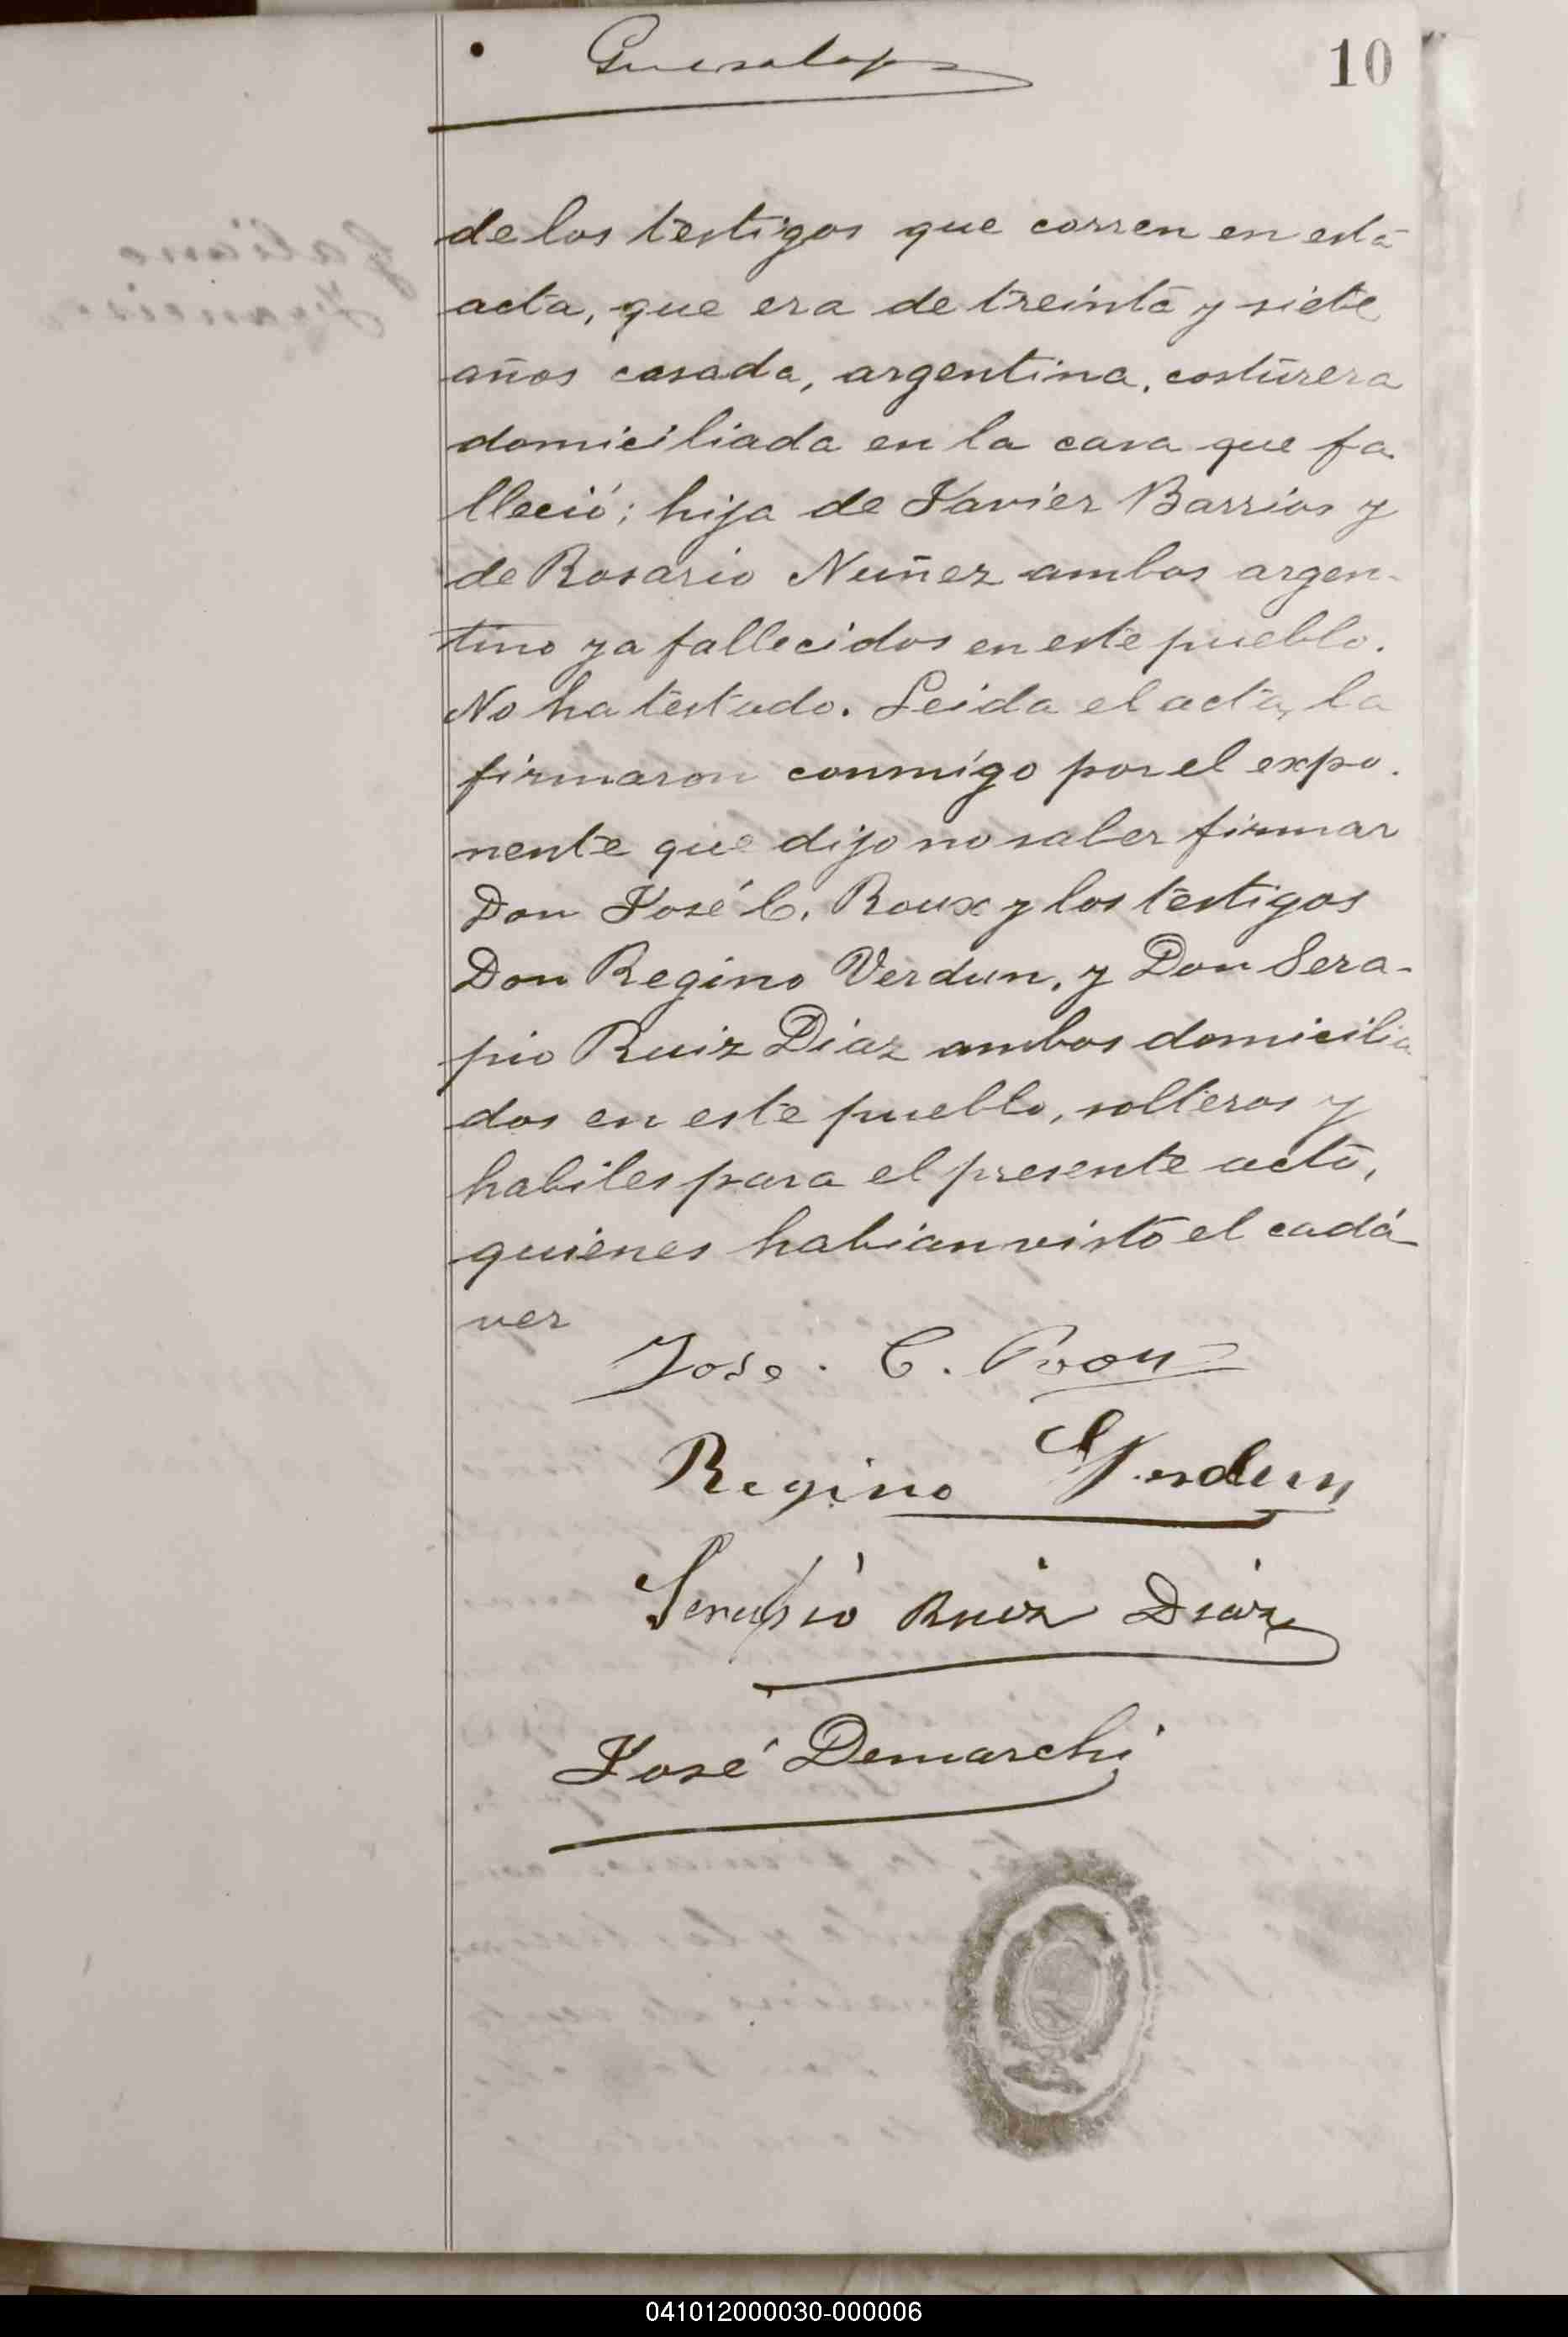 10
de los testigos que corren en esta
acta, que era de treinta y siete
años casada, argentina, costurera
domiciliada en la casa que fa
lleció; hija de Javier Barrios y
de Rosario Nuñez ambos argen-
tino ya fallecidos en este pueblo.
No ha testado. Leida el acta, la
firmaron conmigo por el expo.
nente que dijo no saber firmar
Don José C. Roux y los testigos
Don Regino Verdun, y Don Sera-
pio Ruiz Diaz ambos domicilia
dos en este pueblo, solteros y
habiles para el presente acto,
quienes habian visto el cadá
ver
Jose. C. Roux
Regino Verdun
Serapio Ruiz Diaz
José Demarchi
041012000030-000006